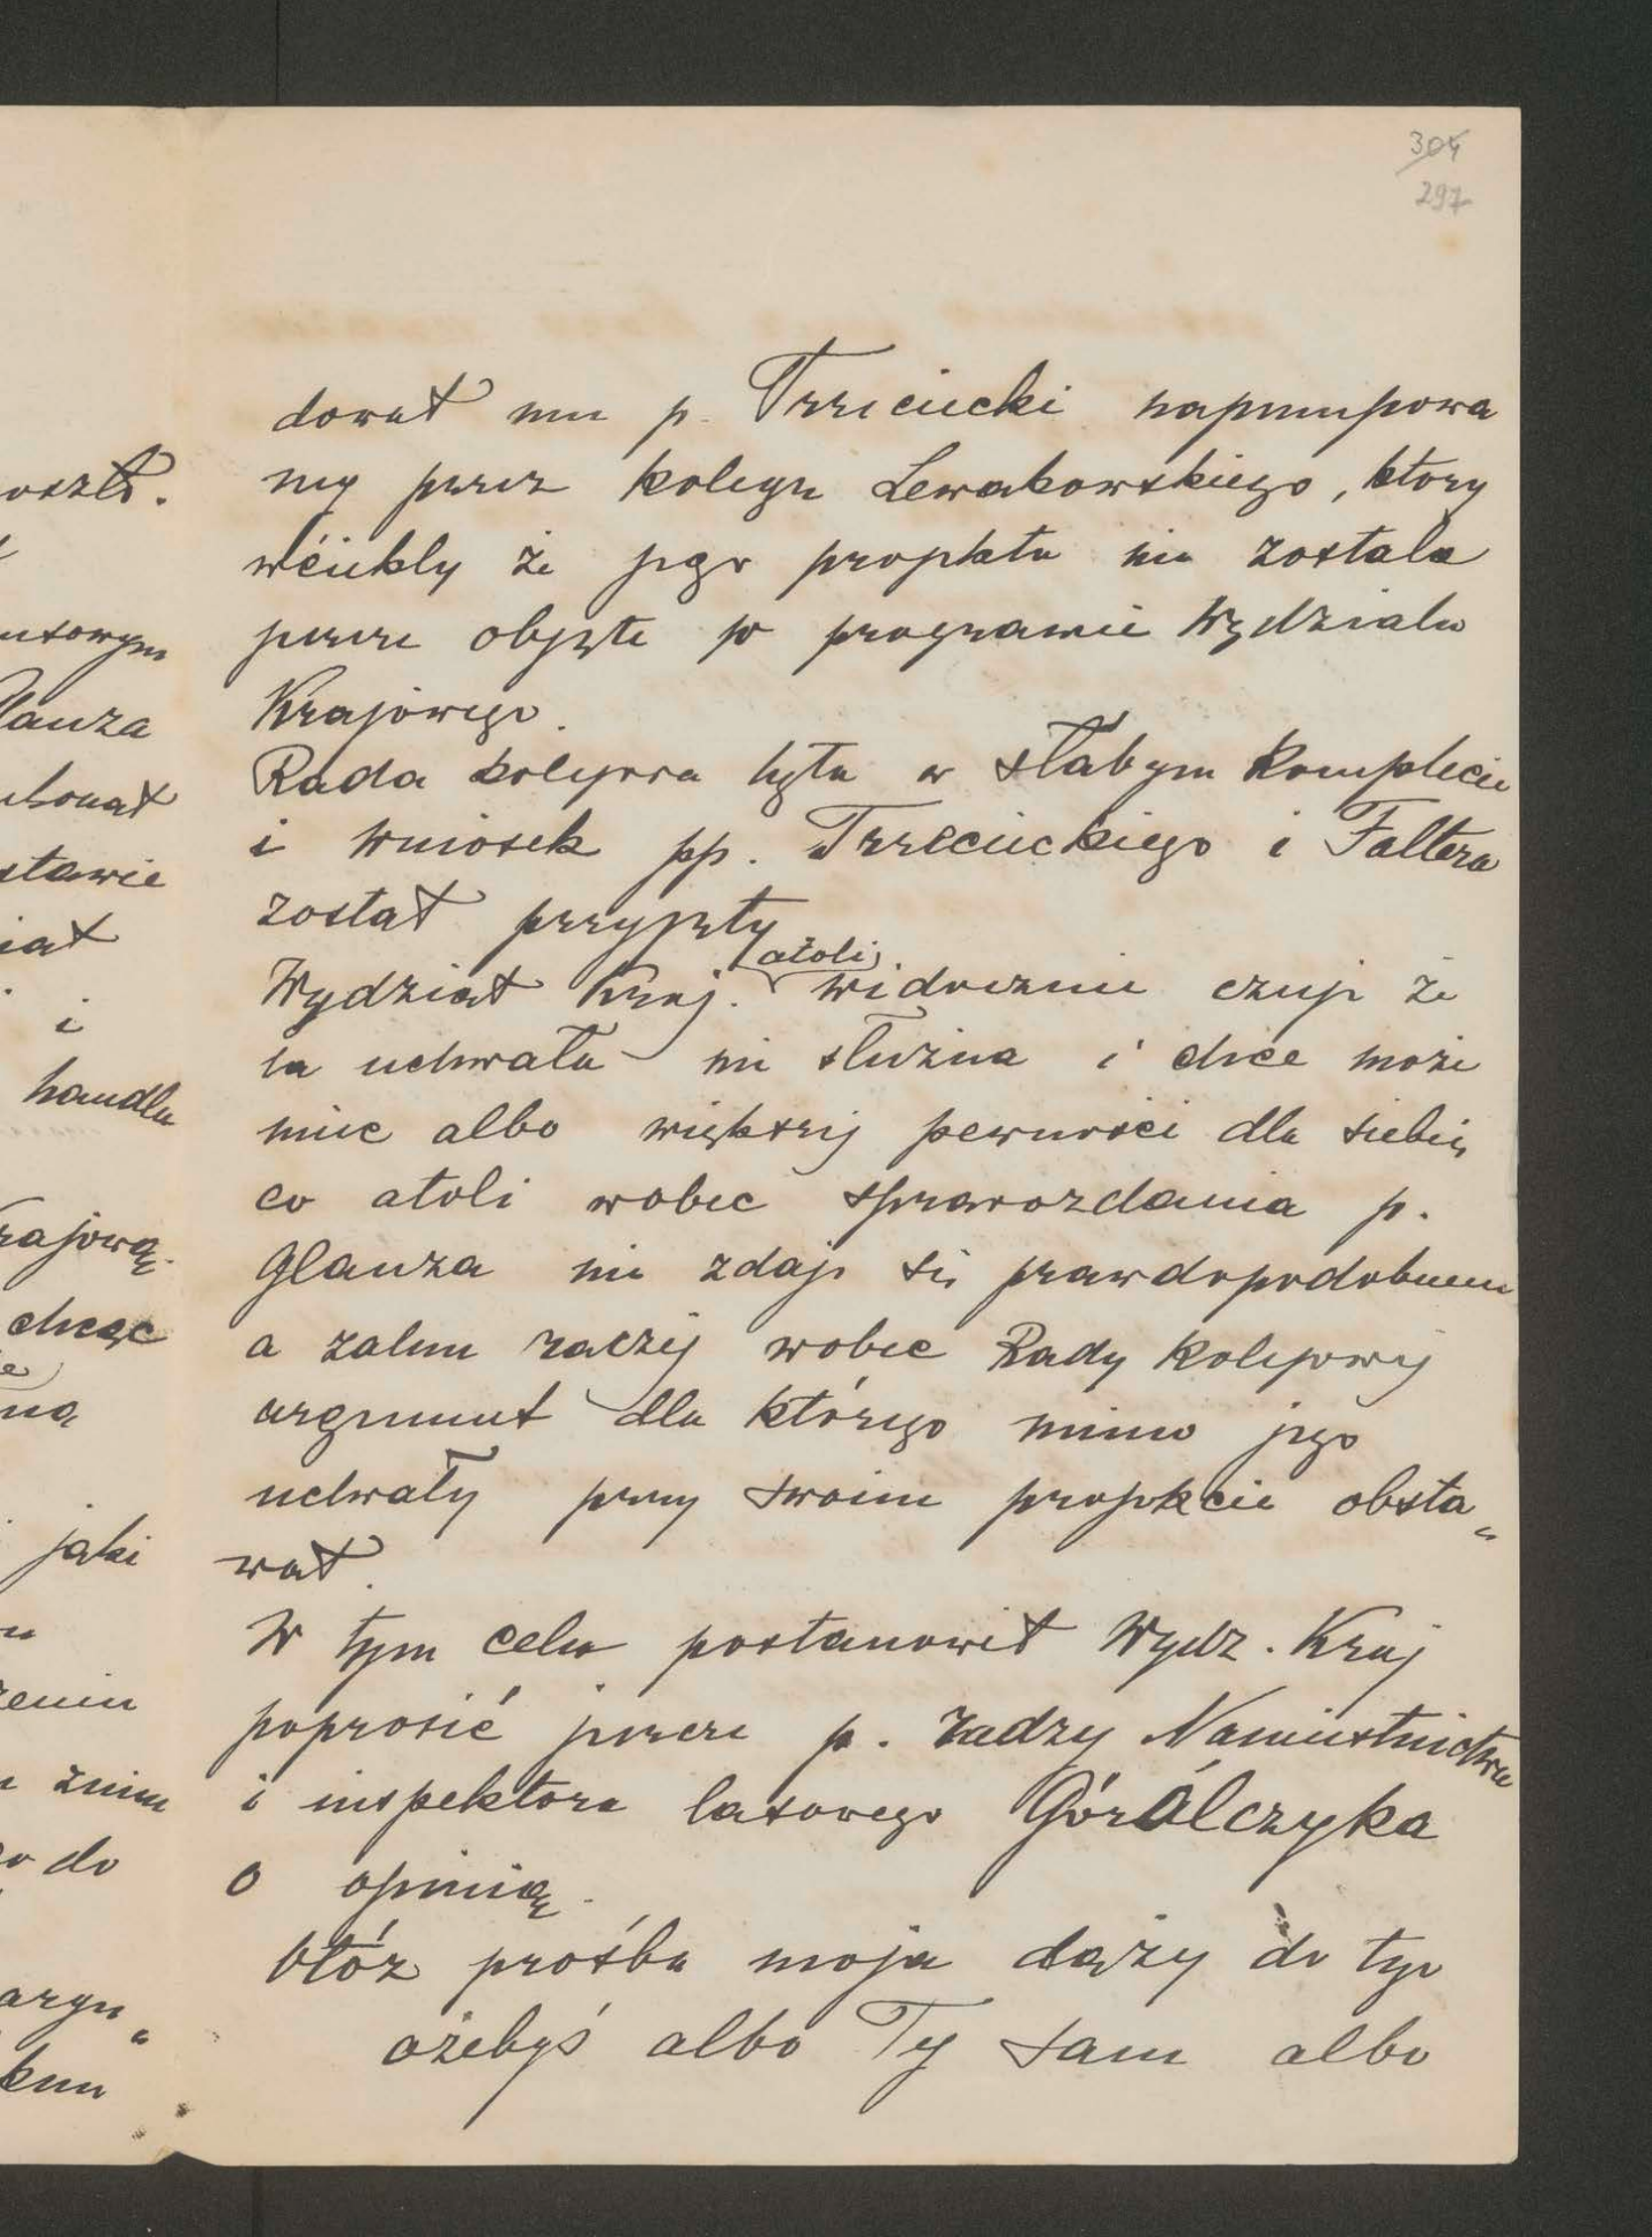 304
297
dował mu p. Trzeciecki napumpowa
ny przez kolegę Lewakowskiego, który
wściekły że jego projektu nie została
przez objęte w programie Wydziału
Krajowego.
Rada kolejowa była w słabym komplecie
i wniosek pp. Trzecieckiego i Faltera
został przyjęty
atoli
Wydział Kraj. widocznie czuje że
ta uchwała nie słuszna i chce może
mieć albo większej pewności dla siebie,
co atoli wobec sprawozdania p.
Glanza nie zdaje się prawdopodobnem
a zatem raczej wobec Rady kolejowej
argument dla którego mimo jego
uchwały przy swoim projekcie obsta„
wał.
W tym celu postanowił Wydz. Kraj
poprosić przeze p. radzcy Namiestnictwa
i inspektora lasowego Góralczyka
o opinię.
Otóż prośba moja dąży do tego
ażebyś albo Ty sam albo
oszło.
lanza
stawie
i
handlu
rajową.
chcąc
ną
jaki
do
argu„